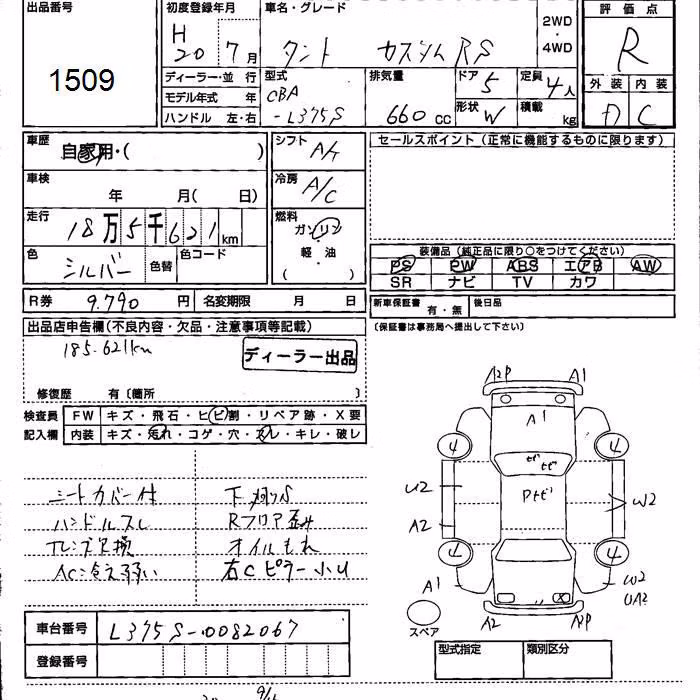 出品番号
1509
初度登録年月
H
20 7月
車名・グレード
タント カスタム RS
2WD
・
4WD
評価点
R
外装 内装
D C
ディーラー・並行
モデル年式 年
ハンドル 左・右
型式
CBA
-L375S
排気量
660 cc
ドア 5
形状 W
定員 4人
積載 kg
車歴
自家用・( )
車検
年 月( 日)
走行
18万5千621km
色
シルバー
色替
色コード
シフト A/T
冷房 A/C
燃料
ガソリン
軽・油
( )
セールスポイント(正常に機能するものに限ります)
装備品(純正品に限り○をつけてください)
PS PW ABS エアB AW
SR ナビ TV カワ
R券 9.790 円 名変期限 月 日
新車保証書 有・無 後日品
(保証書は事務局へ提出して下さい)
出品店申告欄(不良内容・欠品・注意事項等記載)
185.621km
ディーラー出品
修復歴 有〔箇所 〕
検査員 FW キズ・飛石・ヒビ割・リペア跡・X要
記入欄 内装 キズ・汚れ・コゲ・穴・スレ・キレ・破レ
シートカバー付 下
ハンドルスレ Rフロア歪み
オイルもれ
AC冷え弱い 右Cピラー小U
A2P A1
A1
4 4
U2 W2
A2
4 4
A1 W2
UA2
スペア A2 A2P
車台番号 L375S-0082067
登録番号
型式指定 類別区分